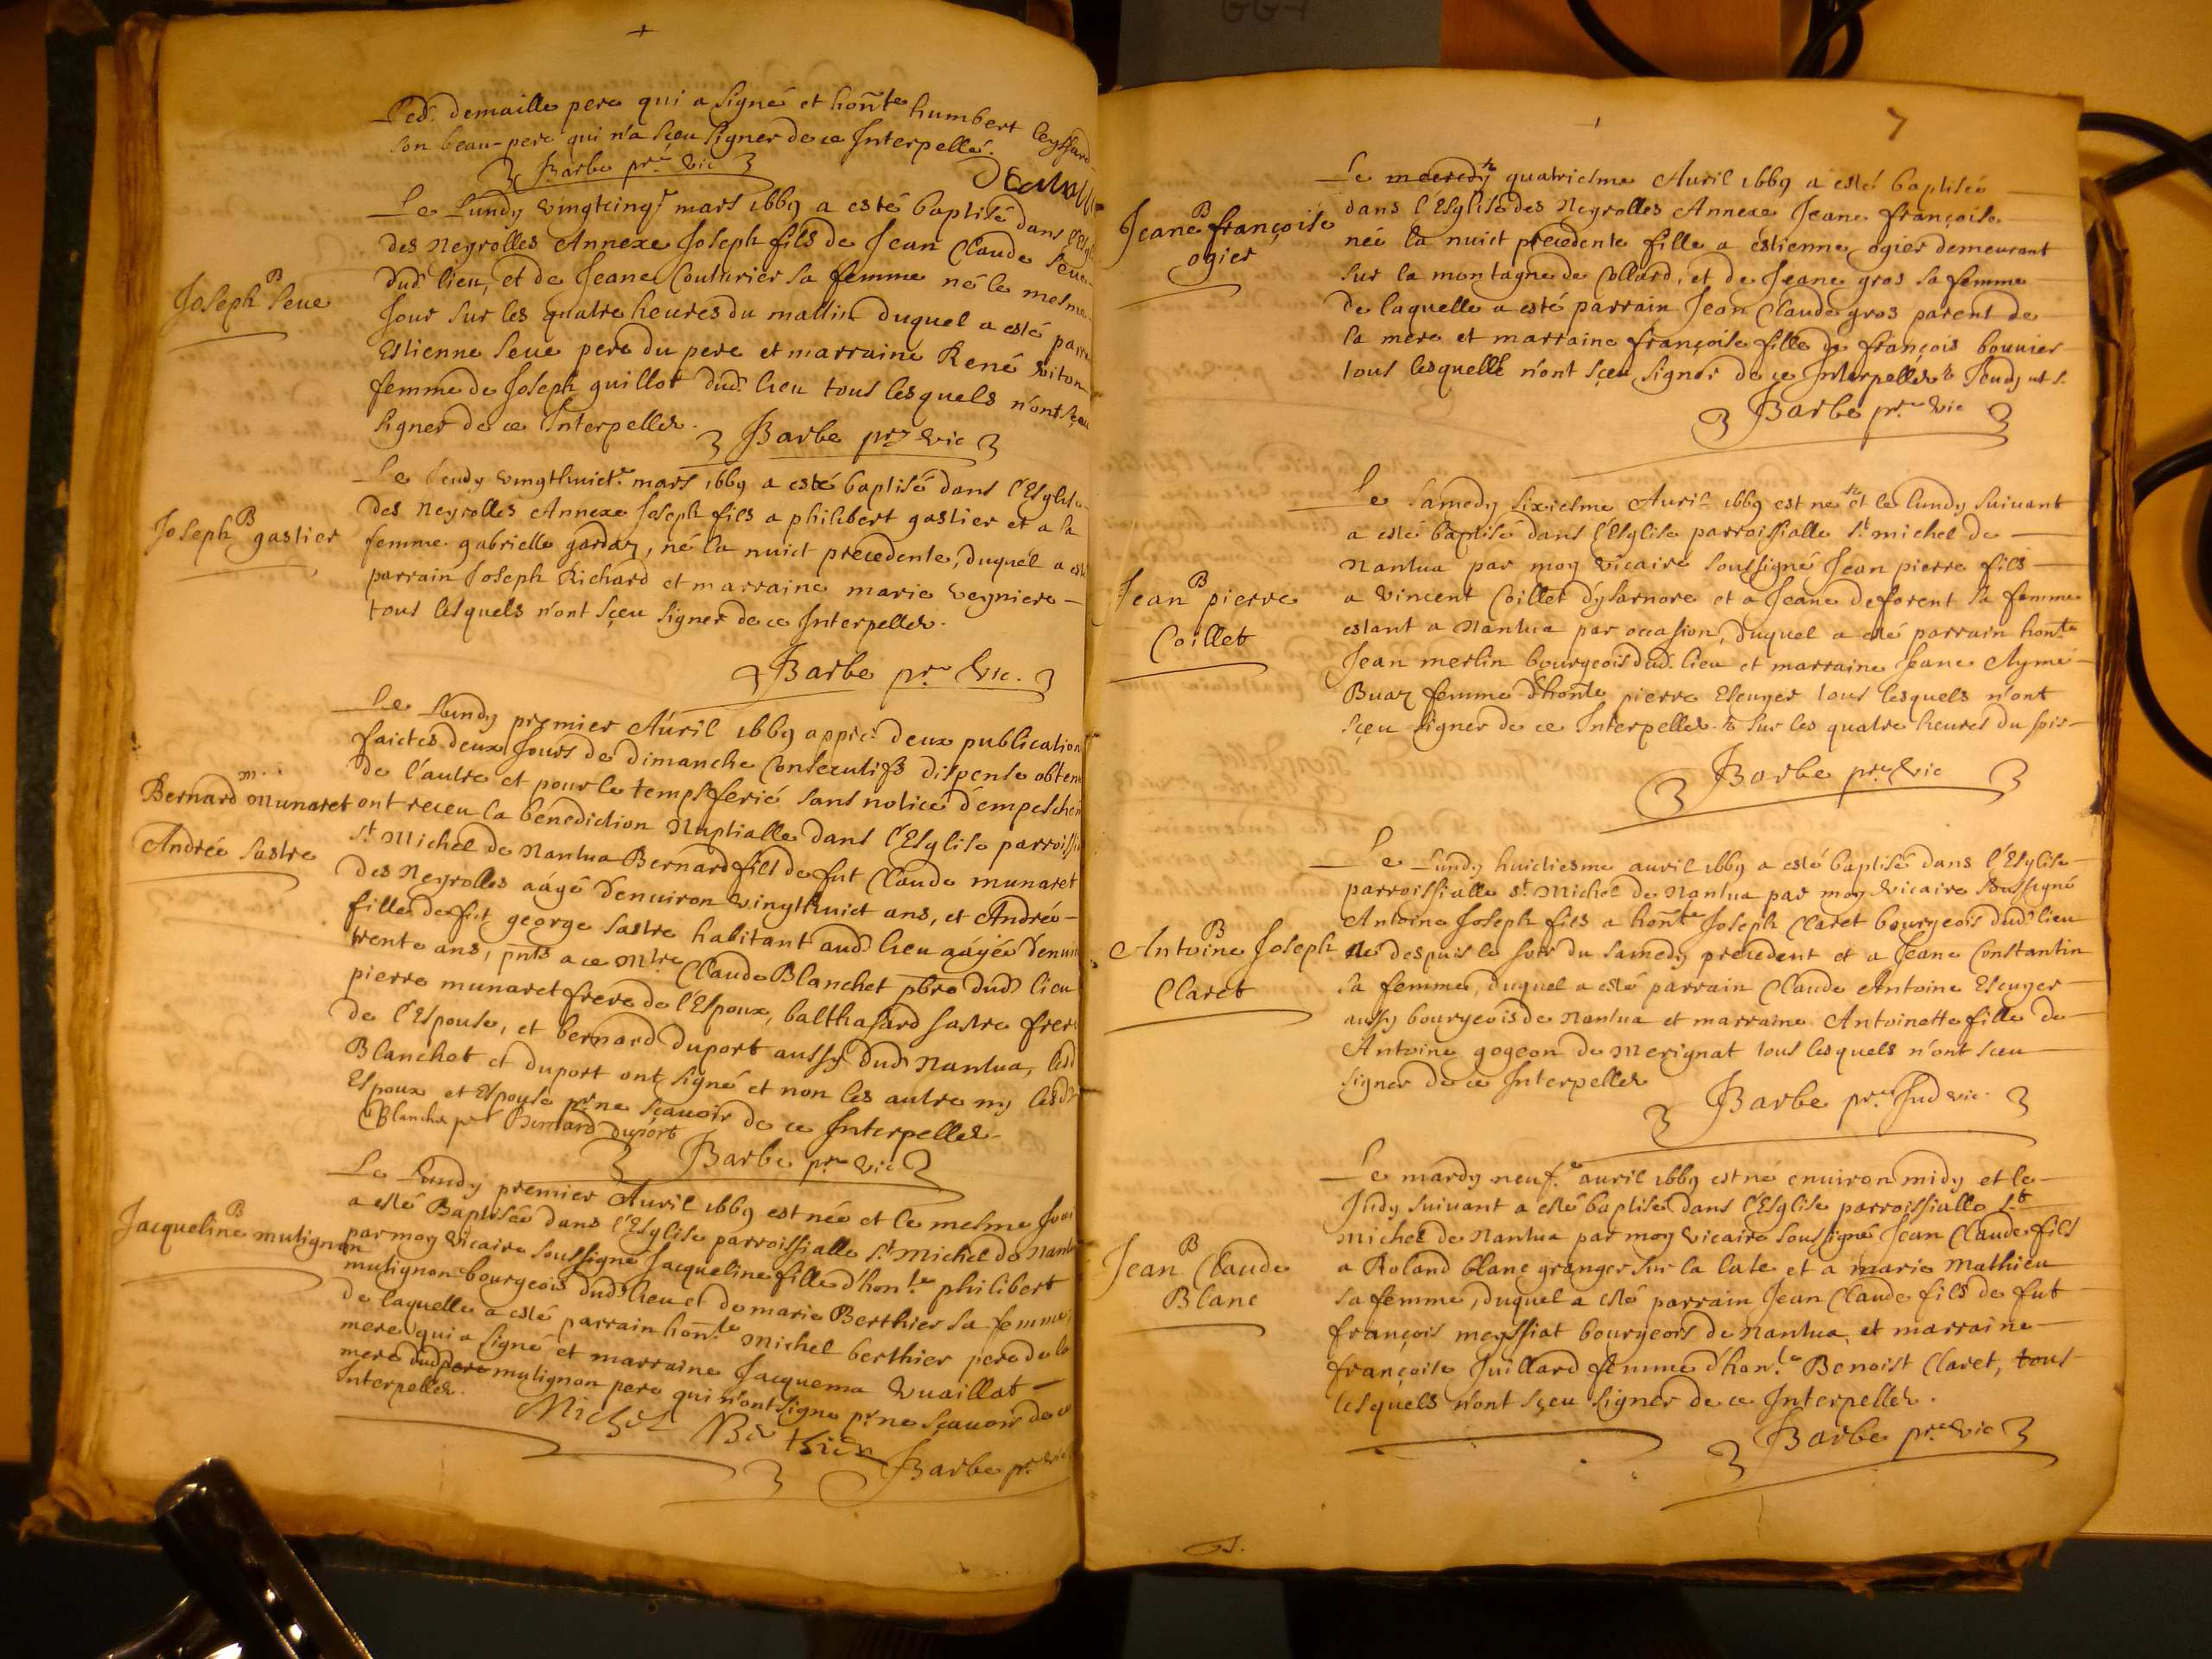 Led. demaille pere qui a signé et hon.te humbert leyssard
son beau-pere qui n'a sçeu signer de ce Interpellé.
Barbe pr.e vic
Demaille
Joseph Seve
B
Le Lundy vingtcinq.e mars 1669 a esté baptisé dans l'Esgl
des Neyrolles Annexe Joseph fils de Jean Claude Seve
dud. lieu, et de Jeane Couturier sa femme né le mesme
Jour sur les quatre heures du mattin duquel a esté parra
Estienne Seve pere du pere et marraine René viton
femme de Joseph guillot dud. lieu tous lesquels n'ont sçeu
signer de ce Interpellez.
Barbe pr.e vic
Joseph gastier
B
Le Jeudy vingthuict.e mars 1669 a esté baptisé dans l'Esglise
des neyrolles Annexe Joseph fils a philibert gastier et a la
femme gabrielle gardaz, né la nuict precedente, duquel a esté
parrain Joseph Richard et marraine marie veyniere
tous lesquels n'ont sçeu signer de ce Interpellez.
Barbe pr.e vic.
Bernard munaret
m.
Andrée Sastre
Le Lundy premier Avril 1669 apprez deux publication
faictes deux Jours de dimanche Consecutifs dispense obten
de l'autre et pour le temps ferié sans notice d'empeschem
ont receu la bénediction Nuptialle dans l'Esglise parroissi
S.t Michel de Nantua Bernard fils de fut Claude munaret
des Neyrolles aâgé d'environ vingthuict ans, et Andrée
fille de fut george Sastre habitant aud. lieu aâgée d'envir
trente ans, pnts a ce M.tre Claude Blanchet pbre dud. lieu
pierre munaret frere de l'Espoux, balthasard Sastre frere
de l'Espouse, et bernard duport aussy dud. Nantua, lesd.
Blanchet et duport ont signé et non les autre ny lesd.
Espoux et Espouse pr. ne sçavoir de ce Interpellez
Blanchet p.re Bernard duport
Barbe pr.e vic
Jacqueline mulignon
B
Le Lundy premier Avril 1669 est née et le mesme Jour
a esté Baptisée dans l'Esglise parroissialle S.t Michel de Nant
par moy vicaire soussigné Jacqueline fille d'hon.te philibert
mulignon bourgeois dud. lieu et de marie Berthier sa femme,
de laquelle a esté parrain hon.te Michel berthier pere de la
mere qui a signé et marraine Jacquema vuaillat
mere dud. pere mulignon pere qui n'ont signe pr. ne sçavoir de ce
Interpellez.
Michel Berthier
Barbe pr.e vic
7
Jeane françoise
B
ogier
Le mecredy quatriesme Avril 1669 a esté baptisée
dans l'Esglise des Neyrolles Annexe Jeane françoise
née la nuict precedente fille a estienne ogier demeurant
sur la montagne de Collard, et de Jeane gros sa femme
de laquelle a esté parrain Jean Claude gros parent de
la mere et marraine françoise fille de françois bouvier
tous lesquelz n'ont sçeu signer de ce Interpellez Jeudy
Barbe pr.e vic
Jean pierre
B
Coillet
Le Samedy Sixiesme Avril 1669 est né et le lundy suivant
a esté baptisé dans l'Esglise parroissialle S.t michel de
Nantua par moy vicaire soussigné Jean pierre fils
a vincent Coillet d'ysarnore et a Jeane deforent sa femme
estant a Nantua par occasion, duquel a esté parrain hon.te
Jean merlin bourgeois dud. lieu et marraine Jeane Aymé
Buaz femme d'hon.te pierre Escuyer tous lesquels n'ont
sçeu signer de ce Interpellez. sur les quatre heures du soir
Barbe pr.e vic
Antoine Joseph
B
Claret
Le Lundy huictiesme avril 1669 a esté baptisé dans l'Esglise
parroissialle S.t Michel de Nantua par moy vicaire soussigné
Antoine Joseph fils a hon.te Joseph Claret bourgeois dud. lieu
né despuis le soir du samedy precedent et a Jeane Constantin
sa femme, duquel a esté parrain Claude Antoine Escuyer
aussy bourgeois de Nantua et marraine Antoinette fille de
Antoine gogeon de Merignat tous lesquels n'ont sceu
signer de ce Interpellez
Barbe pr.e Jud vic.
Jean Claude
B
Blanc
Le mardy neuf.e avril 1669 est né environ midy et le
Judy suivant a esté baptisé dans l'Esglise parroissialle S.t
Michel de Nantua par moy vicaire soussigné Jean Claude fils
a Roland blanc granger sur la late et a marie Mathieu
sa femme, duquel a esté parrain Jean Claude fils de fut
françois meyssiat bourgeois de Nantua, et marraine
françoise Juillard femme d'hon.te Benoist Claret, tous
lesquels n'ont sçeu signer de ce Interpellez.
Barbe pr.e vic